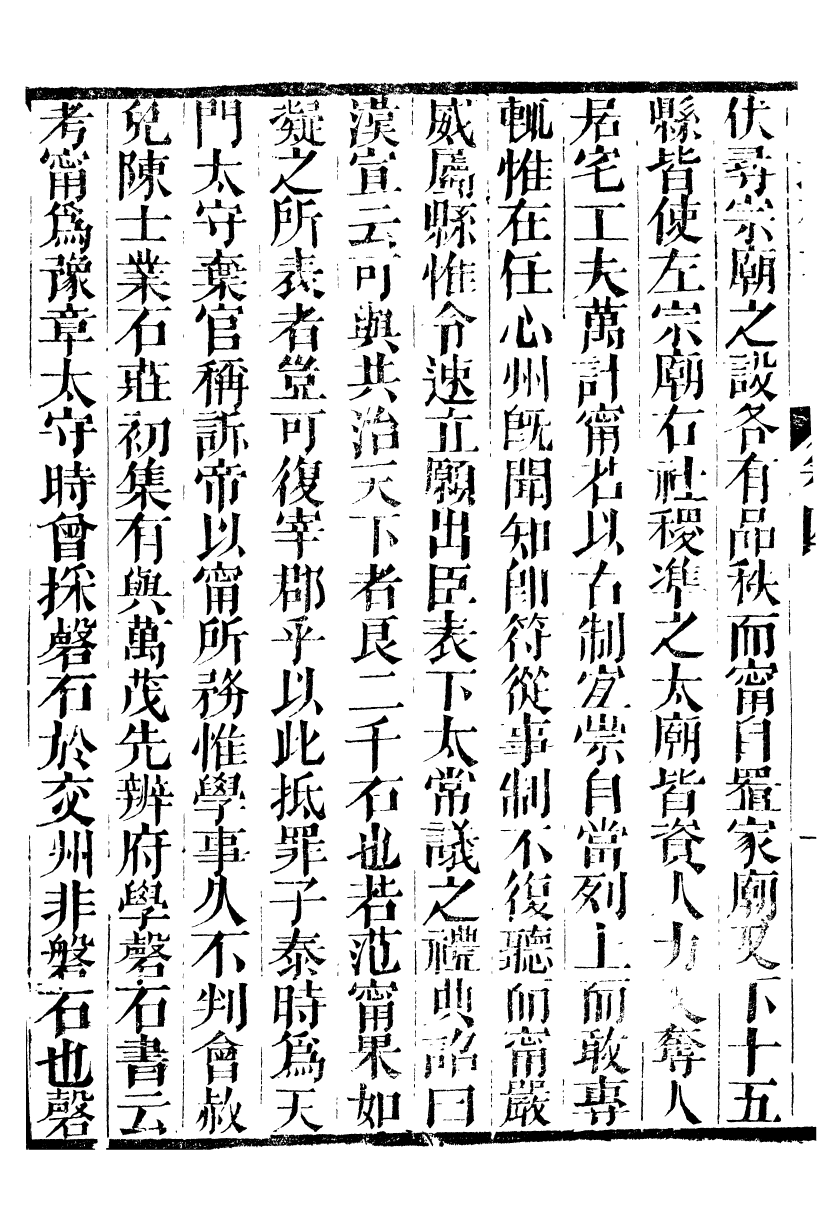 伏尋宗廟之設各有品秩而甯自置家廟又下十五
縣皆使左宗廟右社稷準之太廟皆資人力又奪人
居宅工夫萬計甯若以古制宜崇自當列上而敢專
輒惟在任心州旣聞知卽符從事制不復聽而甯嚴
威屬縣惟令速立願出臣表下太常議之禮典詔曰
漢宣云可與共治天下者良二千石也若范甯果如
凝之所表者豈可復宰郡乎以此抵罪子泰時爲天
門太守棄官稱訴帝以甯所務惟學事久不判會赦
免陳士業石莊初集有與萬茂先辨府學磬石書云
考甯爲豫章太守時曾採磬石於交州非磐石也磬